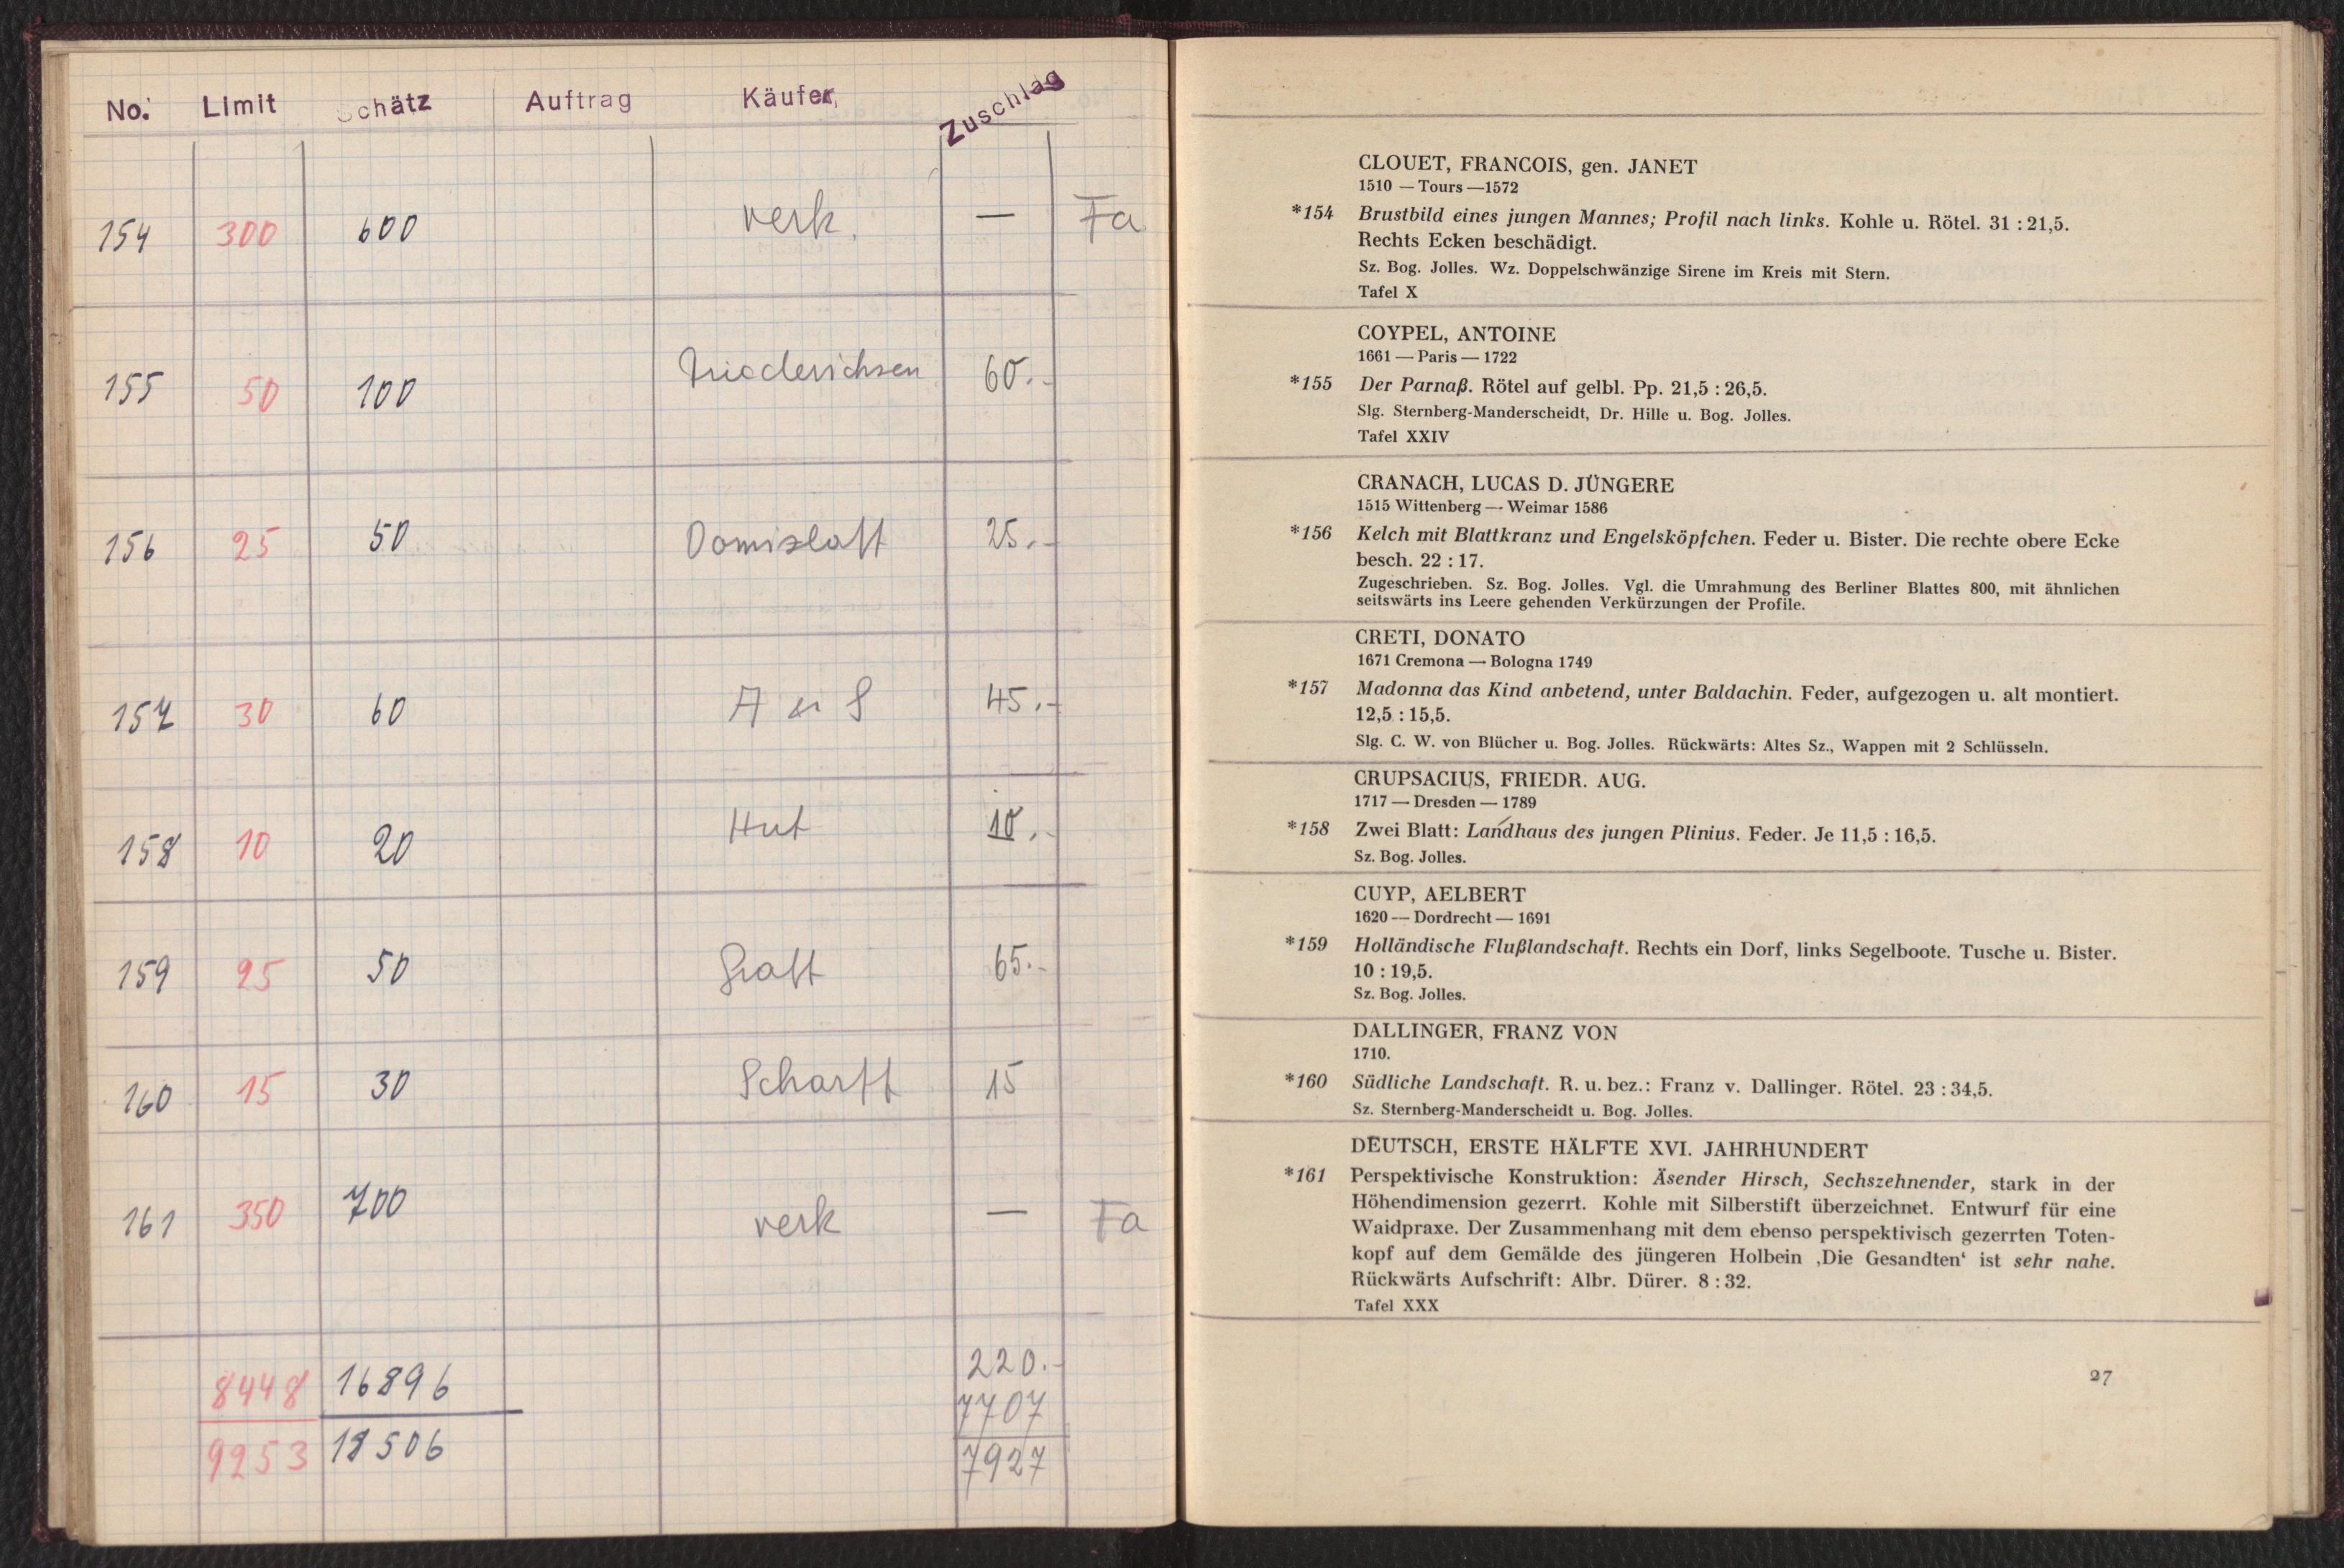 No. Limit Schätz Auftrag Käufer Zuschlag
154 300 600 verk. — Fa
155 50 100 60.-
156 25 50 25.-
157 30 60 A u S 45.-
158 10 20 Hut 10.-
159 25 50 65.-
160 15 30 Scharff 15
161 350 700 verk — Fa
8448 16896 220.-
7707
9253 18506 7927
CLOUET, FRANCOIS, gen. JANET
1510 — Tours — 1572
*154 Brustbild eines jungen Mannes; Profil nach links. Kohle u. Rötel. 31 : 21,5.
Rechts Ecken beschädigt.
Sz. Bog. Jolles. Wz. Doppelschwänzige Sirene im Kreis mit Stern.
Tafel X
COYPEL, ANTOINE
1661 — Paris — 1722
*155 Der Parnaß. Rötel auf gelbl. Pp. 21,5 : 26,5.
Slg. Sternberg-Manderscheidt, Dr. Hille u. Bog. Jolles.
Tafel XXIV
CRANACH, LUCAS D. JÜNGERE
1515 Wittenberg — Weimar 1586
*156 Kelch mit Blattkranz und Engelsköpfchen. Feder u. Bister. Die rechte obere Ecke
besch. 22 : 17.
Zugeschrieben. Sz. Bog. Jolles. Vgl. die Umrahmung des Berliner Blattes 800, mit ähnlichen
seitswärts ins Leere gehenden Verkürzungen der Profile.
CRETI, DONATO
1671 Cremona — Bologna 1749
*157 Madonna das Kind anbetend, unter Baldachin. Feder, aufgezogen u. alt montiert.
12,5 : 15,5.
Slg. C. W. von Blücher u. Bog. Jolles. Rückwärts: Altes Sz., Wappen mit 2 Schlüsseln.
CRUPSACIUS, FRIEDR. AUG.
1717 — Dresden — 1789
*158 Zwei Blatt: Landhaus des jungen Plinius. Feder. Je 11,5 : 16,5.
Sz. Bog. Jolles.
CUYP, AELBERT
1620 — Dordrecht — 1691
*159 Holländische Flußlandschaft. Rechts ein Dorf, links Segelboote. Tusche u. Bister.
10 : 19,5.
Sz. Bog. Jolles.
DALLINGER, FRANZ VON
1710.
*160 Südliche Landschaft. R. u. bez.: Franz v. Dallinger. Rötel. 23 : 34,5.
Sz. Sternberg-Manderscheidt u. Bog. Jolles.
DEUTSCH, ERSTE HÄLFTE XVI. JAHRHUNDERT
*161 Perspektivische Konstruktion: Äsender Hirsch, Sechszehnender, stark in der
Höhendimension gezerrt. Kohle mit Silberstift überzeichnet. Entwurf für eine
Waidpraxe. Der Zusammenhang mit dem ebenso perspektivisch gezerrten Toten-
kopf auf dem Gemälde des jüngeren Holbein ‚Die Gesandten‘ ist sehr nahe.
Rückwärts Aufschrift: Albr. Dürer. 8 : 32.
Tafel XXX
27